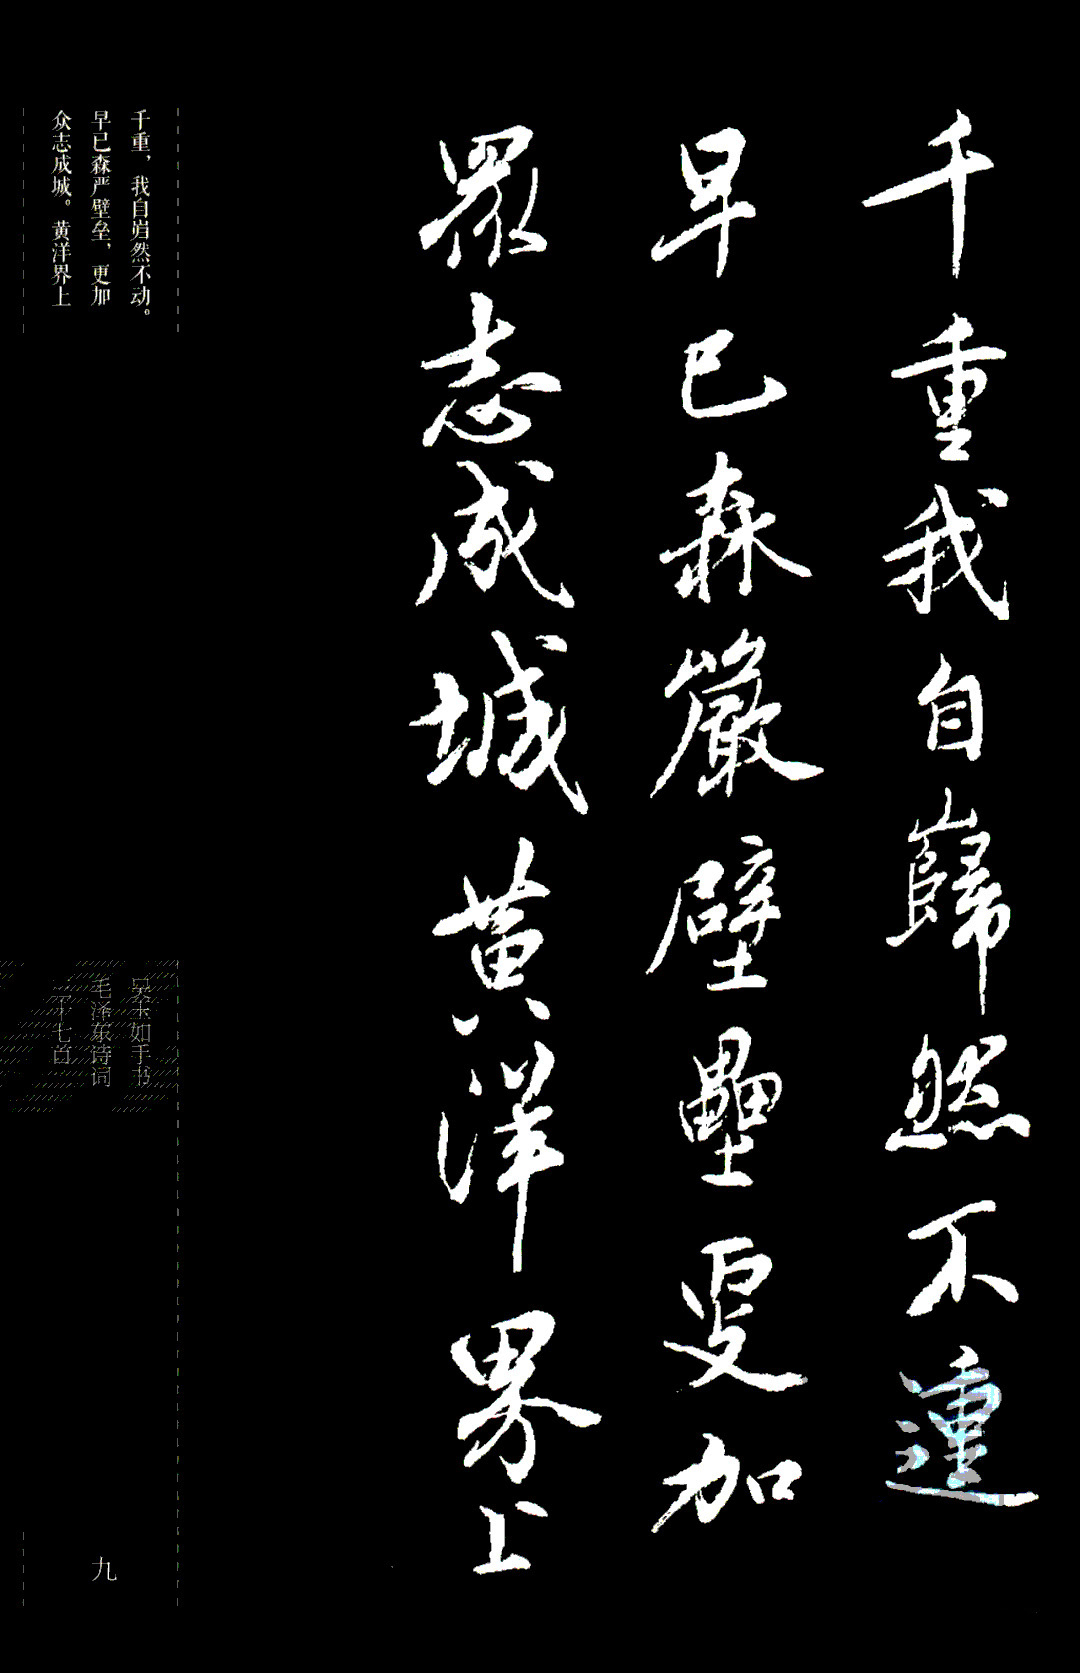 千重我自巋然不𨔝
早已森嚴壁壘更加
眾志成城黃洋界上
千重，我自岿然不动。
早已森严壁垒，更加
众志成城。黄洋界上
吴玉如手书
毛泽东诗词
十七首
九